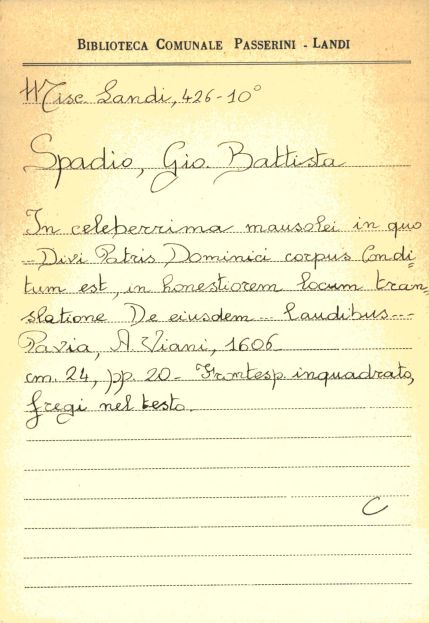 BIBLIOTECA COMUNALE PASSERINI - LANDI
Misc. Landi, 426-10°
Spadio, Gio. Battista
In celeberrima mausolei in quo
... Divi Patris Dominici corpus Condi=
tum est, in honestiorem locum tran=
slatione De eiusdem ... laudibus ...
Pavia, A. Viani, 1606
cm. 24, pp. 20 - Frontesp. inquadrato,
fregi nel testo.
C